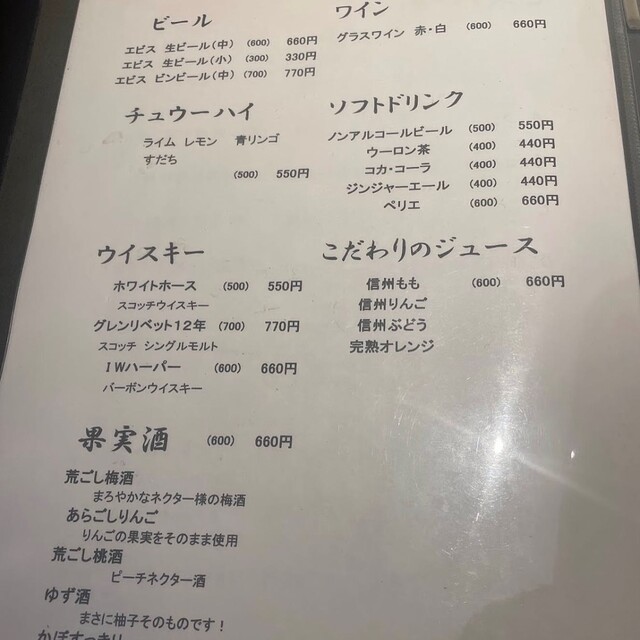 ビール
エビス 生ビール(中) (600) 660円
エビス 生ビール(小) (300) 330円
エビス ビンビール(中) (700) 770円
チュウーハイ
ライム レモン 青リンゴ
すだち
(500) 550円
ウイスキー
ホワイトホース (500) 550円
スコッチウイスキー
グレンリベット12年 (700) 770円
スコッチ シングルモルト
IWハーパー (600) 660円
バーボンウイスキー
果実酒 (600) 660円
荒ごし梅酒
まろやかなネクター様の梅酒
あらごしりんご
りんごの果実をそのまま使用
荒ごし桃酒
ピーチネクター酒
ゆず酒
まさに柚子そのものです!
かぼすっきり
ワイン
グラスワイン 赤・白 (600) 660円
ソフトドリンク
ノンアルコールビール (500) 550円
ウーロン茶 (400) 440円
コカ・コーラ (400) 440円
ジンジャーエール (400) 440円
ペリエ (600) 660円
こだわりのジュース
信州もも (600) 660円
信州りんご
信州ぶどう
完熟オレンジ